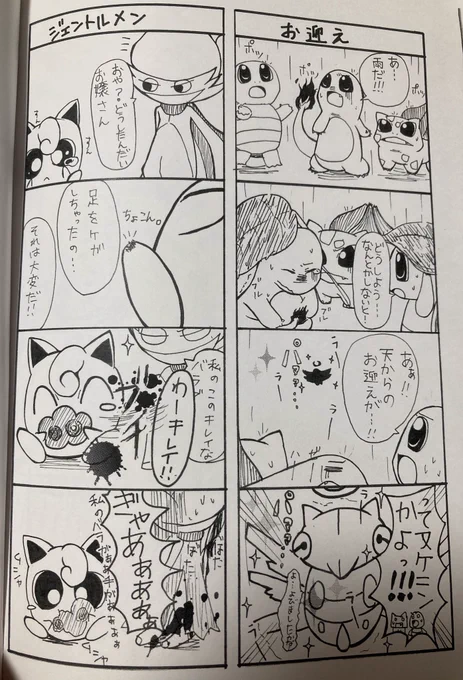 お迎え
あ…
雨だ!!!
ポッ
ポッ
ポッ
どうしよう……
なんとかしないと…
ブル
ブル
あぁ!!
天からの
お迎えが…!!
って ヌケニン
かよっ!!!
よ…よびましたか?
ジェントルメン
おやっ?どうしたんだい
お嬢さん
ちょこん。
足をケガ
しちゃったの…
それは大変だ!!
私の
このキレイな
バラで
わーキレイ!!
ぎゃあぁぁぁぁ
私のバラがぁぁ手がぁぁぁぁ
グニャ
グニャ
ぼた
ぼた